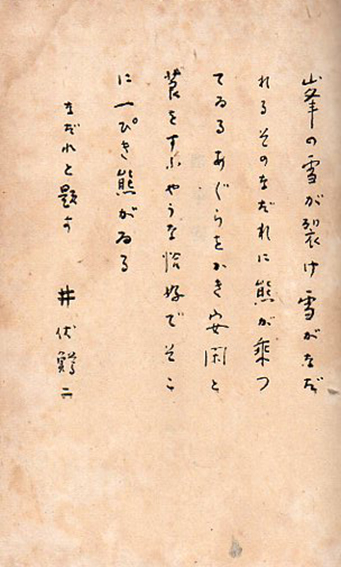 峯の雪が裂け雪がなだ
れるそのなだれに熊が乗つ
てゐるあぐらをかき安閑と
莨をすふやうな恰好でそこ
に一ぴき熊がゐる
なだれと題す 井伏鱒二